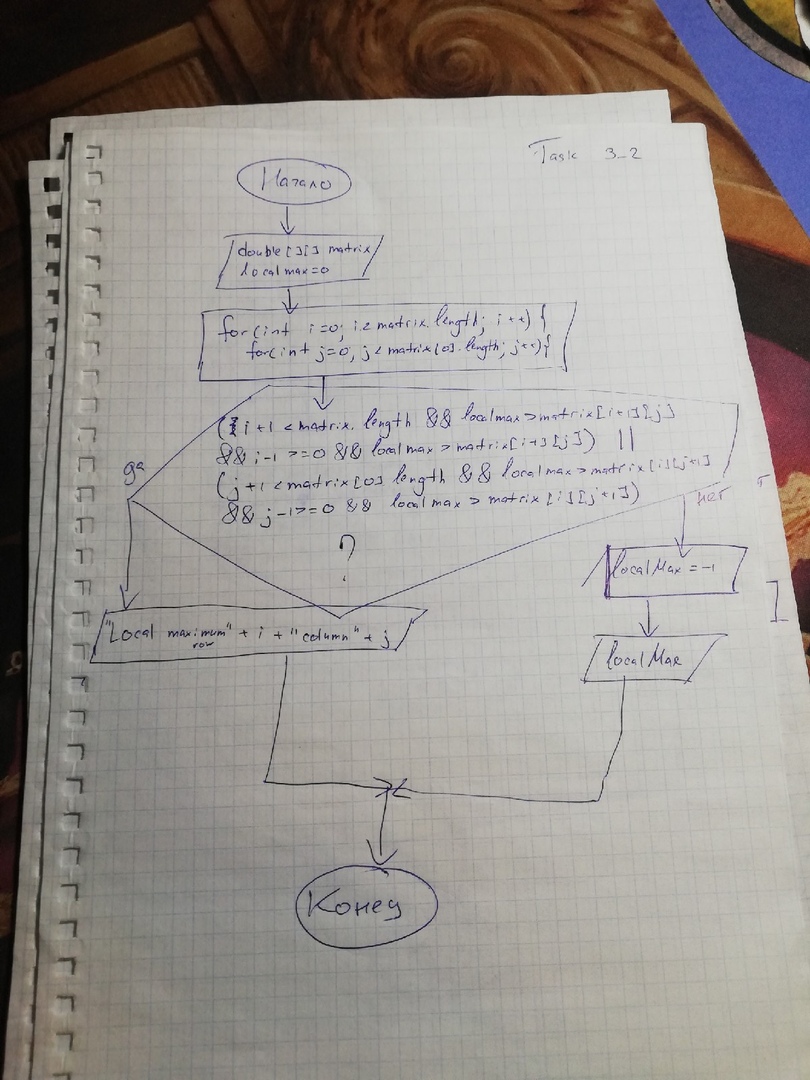 Task 3_2
Начало
double[][] matrix
localmax=0
for(int i=0; i<matrix.length; i++) {
for(int j=0, j<matrix[0].length; j++){
(i+1 <matrix. length && localmax>matrix[i+1][j]
&& i-1 >=0 && localmax > matrix[i+1][j]) ||
(j+1 <matrix[0] length && localmax>matrix[i][j+1]
&& j-1>=0 && localmax > matrix [i][j+1])
?
да
нет
localMax = -1
"Local maximum" + i + "column" + j
row
localMax
Конец